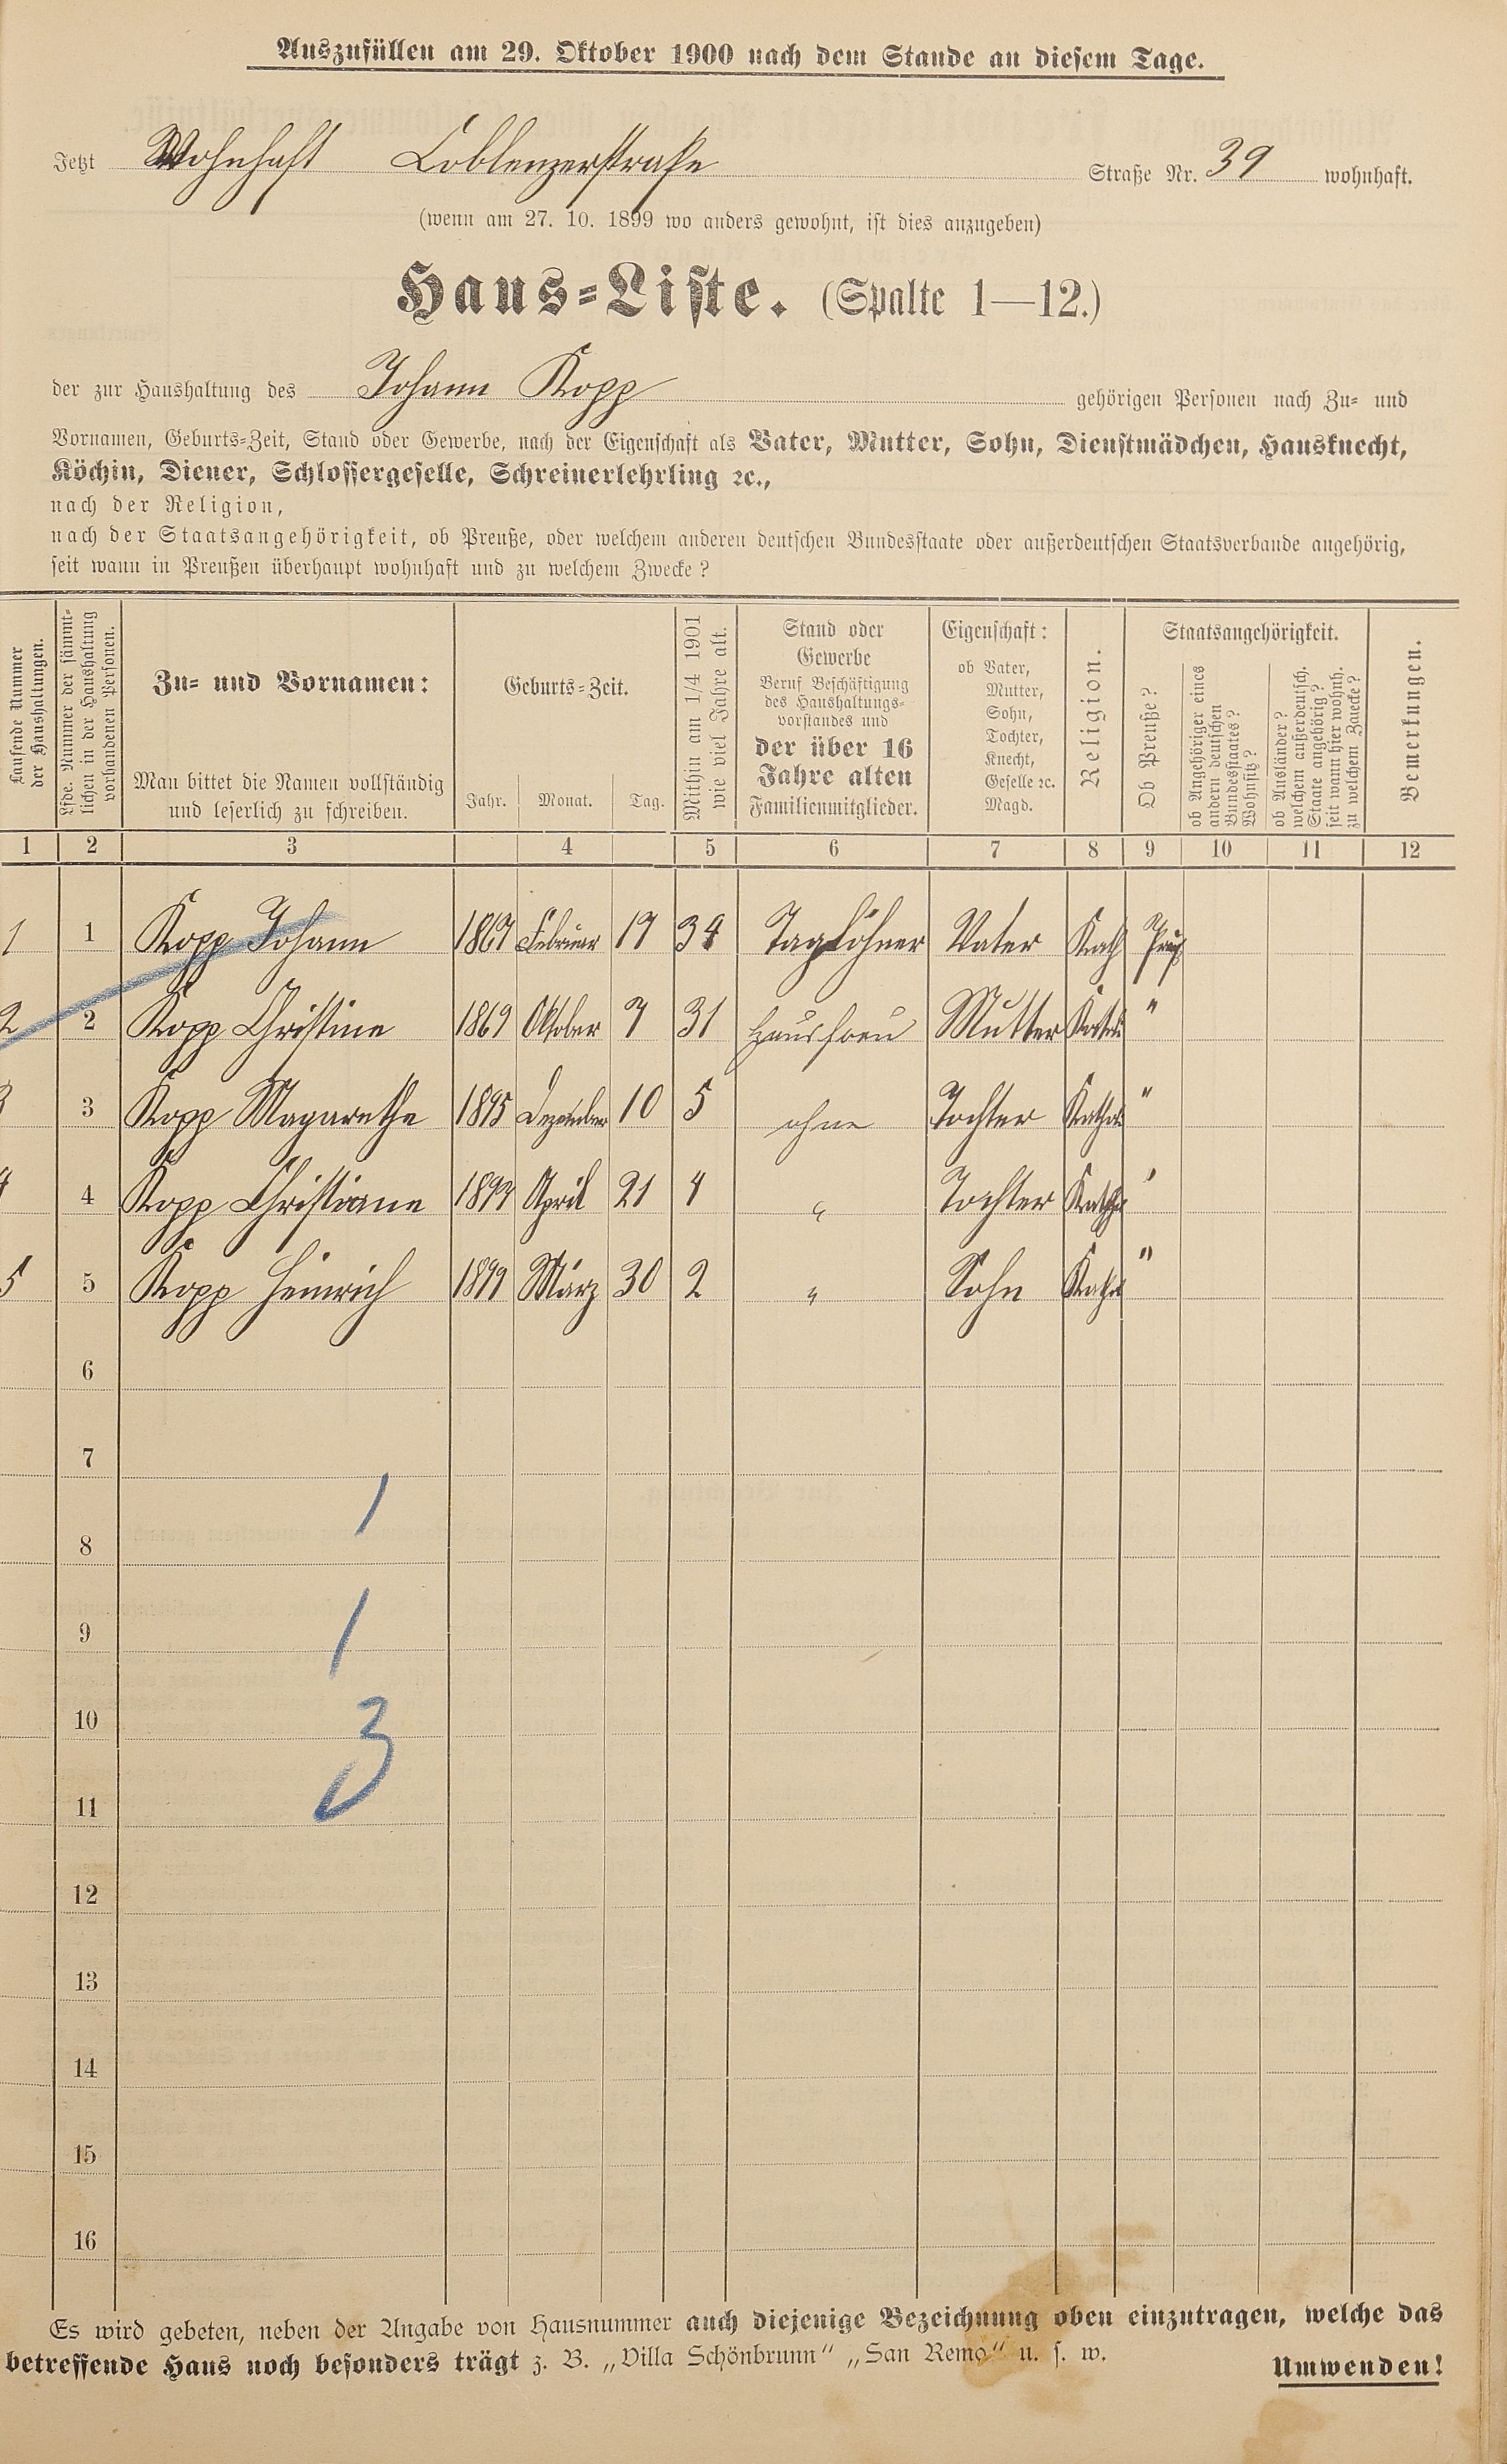 Auszufüllen am 29. Oktober 1900 nach dem Stande an diesem Tage.
Jetzt Wohnhaft Coblenzerstraße Straße Nr. 39 wohnhaft.
(wenn am 27. 10. 1899 wo anders gewohnt, ist dies anzugeben)
Haus-Liste. (Spalte 1—12.)
der zur Haushaltung des Johann Kopp gehörigen Personen nach Zu- und
Vornamen, Geburts-Zeit, Stand oder Gewerbe, nach der Eigenschaft als Vater, Mutter, Sohn, Dienstmädchen, Hausknecht,
Köchin, Diener, Schlossergeselle, Schreinerlehrling ꝛc.,
nach der Religion,
nach der Staatsangehörigkeit, ob Preuße, oder welchem anderen deutschen Bundesstaate oder außerdeutschen Staatsverbande angehörig,
seit wann in Preußen überhaupt wohnhaft und zu welchem Zwecke?
Laufende Nummer
der Haushaltungen.
Lfde. Nummer der sämmt-
lichen in der Haushaltung
vorhandenen Personen.
Zu- und Vornamen:
Man bittet die Namen vollständig
und leserlich zu schreiben.
Geburts-Zeit.
Jahr. Monat. Tag.
Mithin am 1/4 1901
wie viel Jahre alt.
Stand oder
Gewerbe
Beruf Beschäftigung
des Haushaltungs-
vorstandes und
der über 16
Jahre alten
Familienmitglieder.
Eigenschaft:
ob Vater,
Mutter,
Sohn,
Tochter,
Knecht,
Geselle ꝛc.
Magd.
Religion.
Staatsangehörigkeit.
Ob Preuße?
ob Angehöriger eines
andern deutschen
Bundesstaates?
Wohnsitz?
ob Ausländer?
welchem außerdeutsch.
Staate angehörig?
seit wann hier wohnh.
zu welchem Zwecke?
Bemerkungen.
1 2 3 4 5 6 7 8 9 10 11 12
1 1 Kopp Johann 1867 Februar 17 34 Taglöhner Vater Kath Prß
2 2 Kopp Christine 1869 Oktober 7 31 Hausfrau Mutter Kath "
3 3 Kopp Magarethe 1895 Dezember 10 5 ohne Tochter Kathol "
4 4 Kopp Christiane 1897 April 21 4 " Tochter Kathol "
5 5 Kopp Heinrich 1899 März 30 2 " Sohn Kathol "
6
7
1
8
9
1
10
3
11
12
13
14
15
16
Es wird gebeten, neben der Angabe von Hausnummer auch diejenige Bezeichnung oben einzutragen, welche das
betreffende Haus noch besonders trägt z. B. „Villa Schönbrunn“ „San Remo“ u. s. w.
Umwenden!